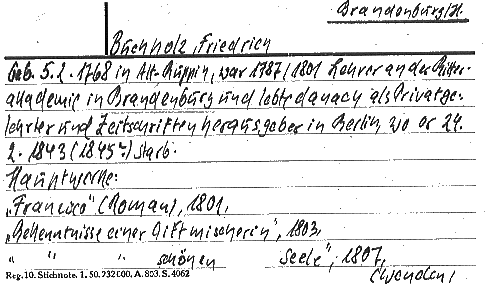 Brandenburg/H.
Buchholz, Friedrich
Geb. 5. 2. 1768 in Alt-Ruppin, war 1787/1801 Lehrer an der Ritter-
akademie in Brandenburg und lebte danach als Privatge-
lehrter und Zeitschriftenherausgeber in Berlin, wo er 24.
2. 1843 (1845?) starb.
Hauptwerke:
"Francesco" (Roman), 1801,
"Bekenntnisse einer Giftmischerin", 1803,
" " " schönen Seele", 1807,
(wenden)
Reg. 10. Stichnote. 1. 50. 732 000. A. 803. S. 4062